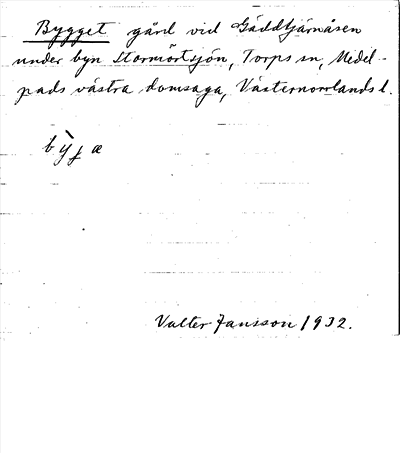 Bygget gård vid Gäddtjärnåsen
under byn Stormörtsjön, Torps sn, Medel-
pads västra domsaga, Västernorrlands l.
Valter Jansson 1932.